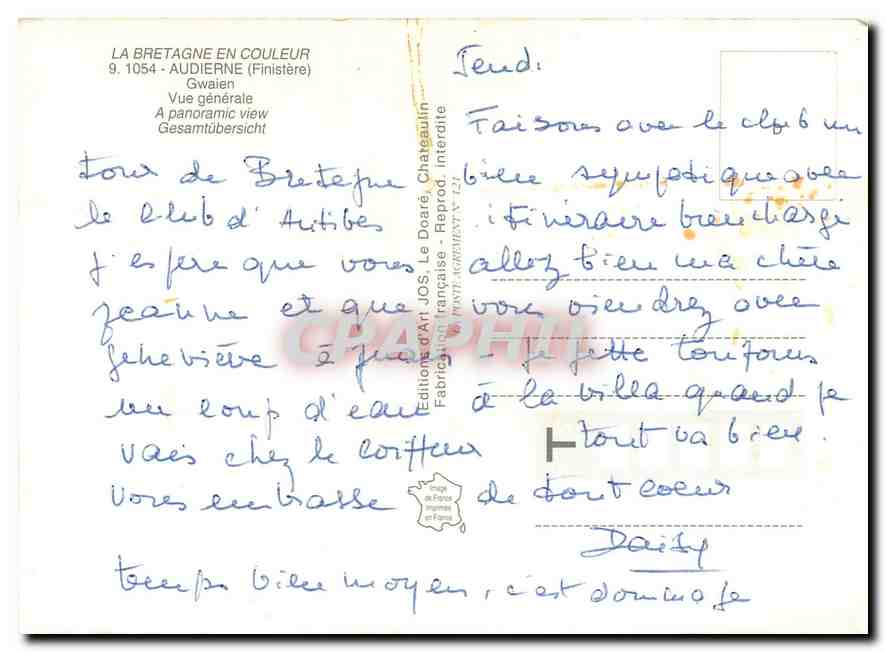 LA BRETAGNE EN COULEUR
9. 1054 - AUDIERNE (Finistère)
Gwaien
Vue générale
A panoramic view
Gesamtübersicht
Jeudi
Faisons avec le club un
tour de Bretagne bien sympatique avec
le Club d'Antibes itinéraire bien chargé
j'espère que vous allez bien ma chère
Jeanne et que vous viendrez avec
Geneviève à Juan - Je jette toujours
un coup d'eau à la villa quand je
vais chez le coiffeur tout va bien.
vous embrasse de tout coeur
Daisy
temps bien moyen, c'est dommage
Editions d'Art JOS, Le Doaré, Chateaulin
Fabrication française - Reprod. interdite
POSTE AGREMENT N° 121
Image
de France
Imprimée
en France
CPAPHIL